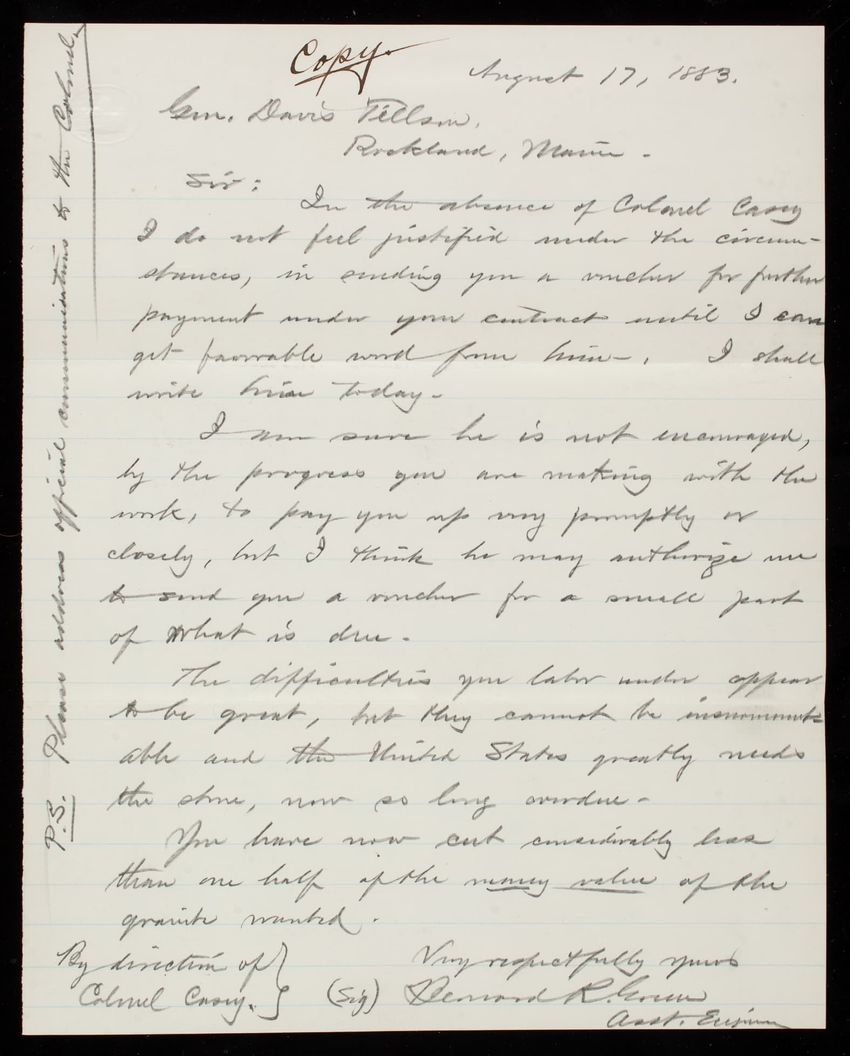 Copy.
August 17, 1883.
Gen. Davis Tillson,
Rockland, Maine.
Sir:
In the absence of Colonel Casey
I do not feel justified under the circum-
stances, in sending you a voucher for further
payment under your contract until I can
get favorable word from him. I shall
write him today.
I am sure he is not encouraged,
by the progress you are making with the
work, to pay you up very promptly or
closely, but I think he may authorize me
to send you a voucher for a small part
of what is due.
The difficulties you labor under appear
to be great, but they cannot be insurmount-
able and the United States greatly needs
the stone, now so long overdue.
You have now cut considerably less
than one half of the money value of the
granite wanted.
Very respectfully yours
By direction of
Colonel Casey.
(Sig) Bernard R. Green
Asst. Engineer
P.S. Please address official communications to the Colonel.